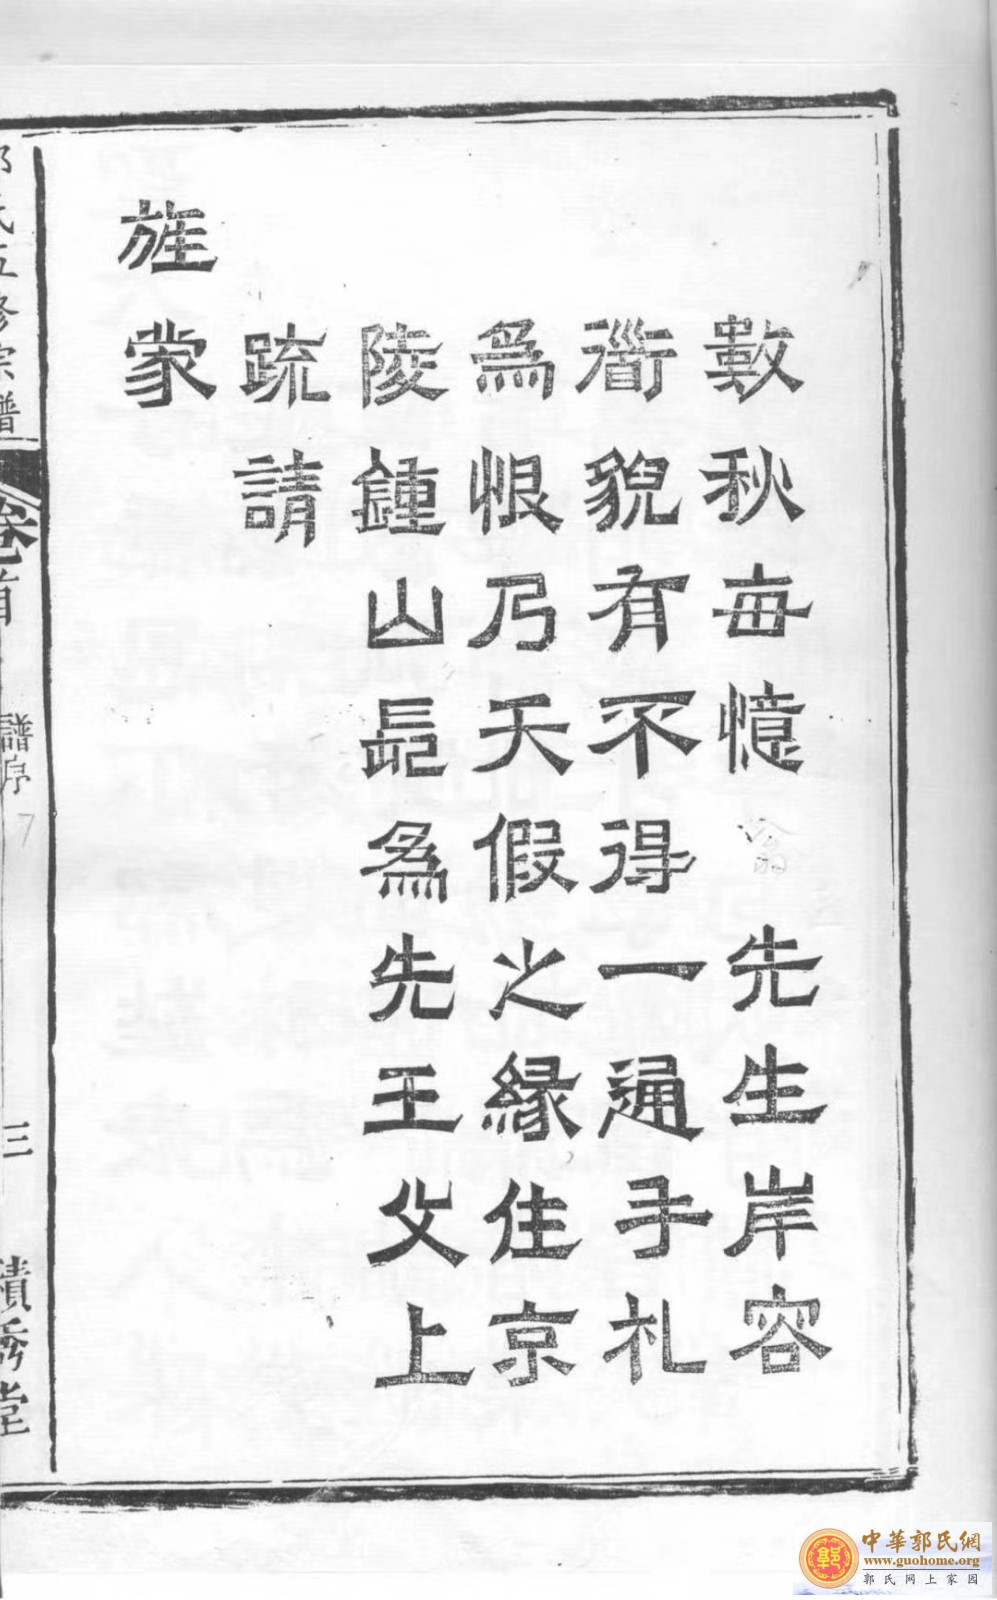 數秋每憶 先生岸容
衜貌有不得一通手札
爲恨乃天假之緣住京
陵鍾山爲先王父上
疏請
旌蒙
郭氏五修宗譜
卷首
譜序
7
三
積秀堂
中華郭氏網
www.guohome.org
郭氏网上家园